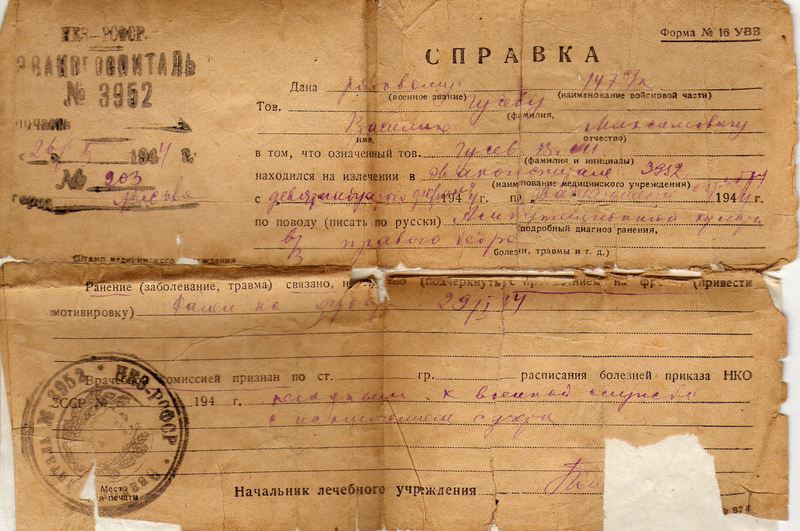 НКЗ-РСФСР.
ЭВАКОГОСПИТАЛЬ
№ 3952
194 г.
№ 203
Форма № 16 УВВ
СПРАВКА
Дана рядовому
(военное звание) (наименование войсковой части)
Тов. Гусеву
(фамилия,
Василию Максимовичу
имя, отчество)
в том, что означенный тов. Гусев В. М
(фамилия и инициалы)
находился на излечении в эвакогоспитале 3952
(наименование медицинского учреждения)
с 194 г. по 194 г.
по поводу (писать по русски)
подробный диагноз ранения,
в/з правого бедра
болезни, травмы и т. д.)
Штамп медицинского учреждения
Ранение (заболевание, травма) связано, (подчеркнуть) на (привести
мотивировку) Ранен на 29/I 44
Врачебной комиссией признан по ст. гр. расписания болезней приказа НКО
СССР № 194 г. негодным к военной службе
с исключением с учета
НКЗ-РСФСР
№ 3952
Место
печати
Начальник лечебного учреждения